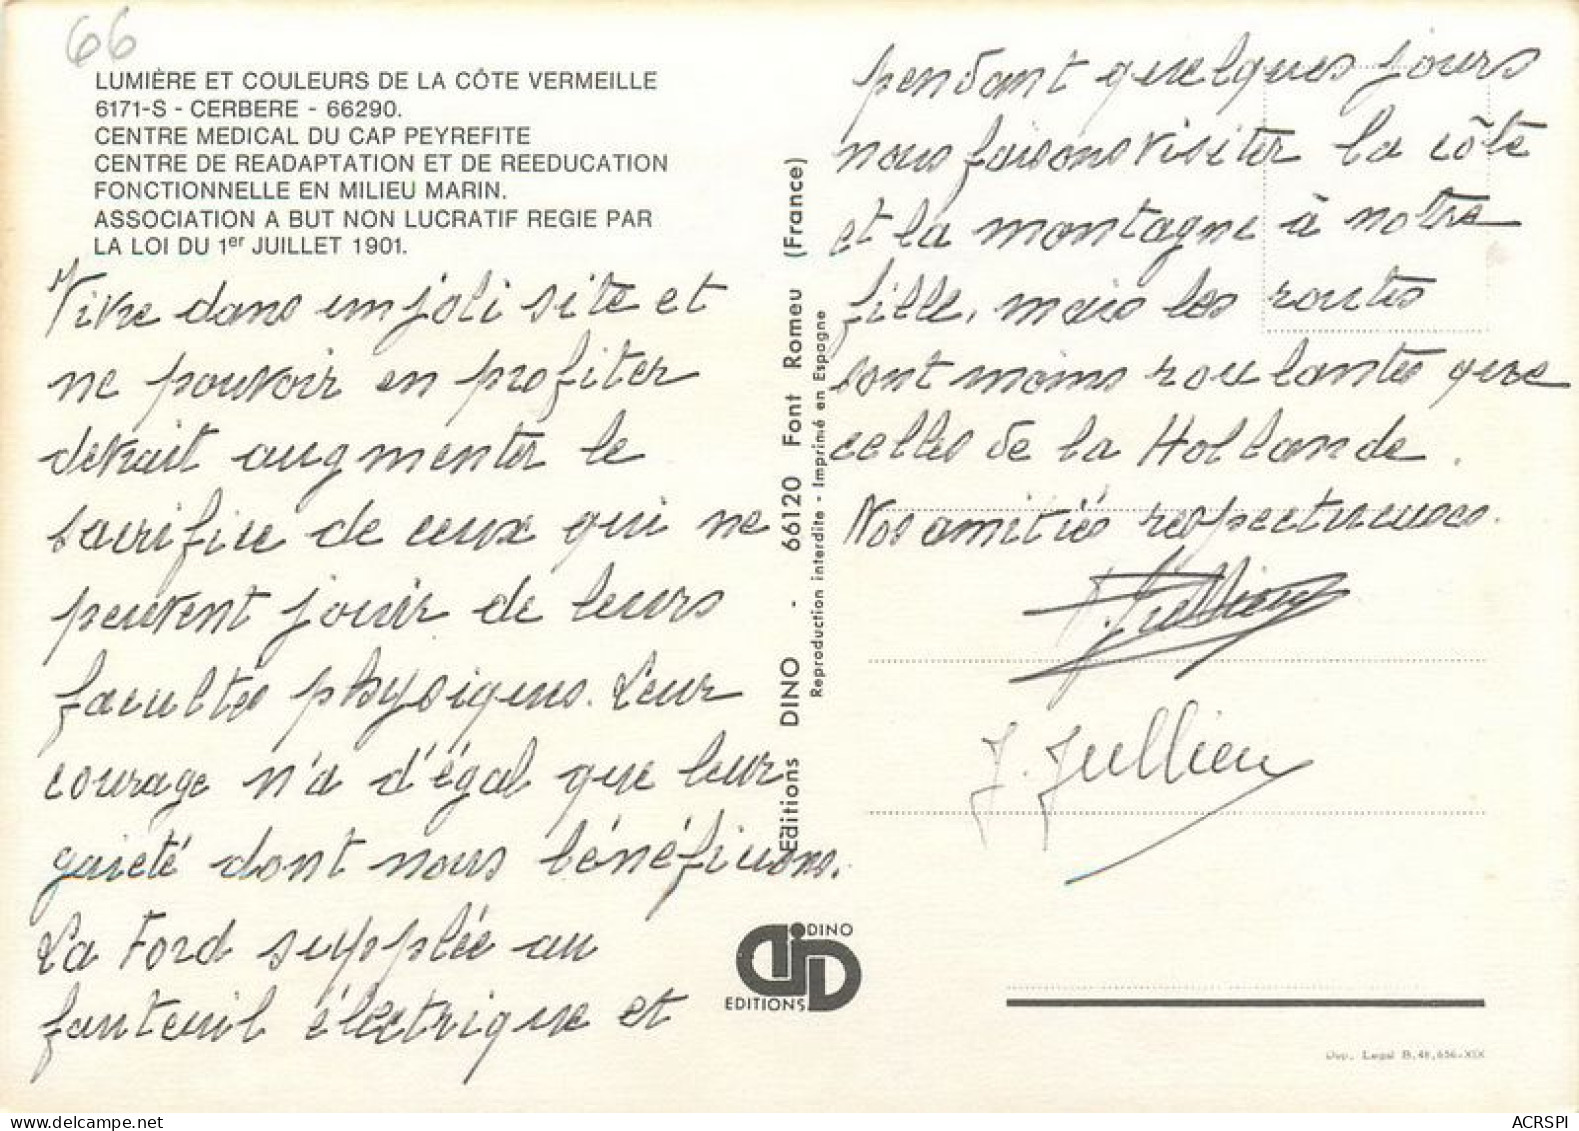 66
LUMIÈRE ET COULEURS DE LA CÔTE VERMEILLE
6171-S - CERBERE - 66290.
CENTRE MEDICAL DU CAP PEYREFITE
CENTRE DE READAPTATION ET DE REEDUCATION
FONCTIONNELLE EN MILIEU MARIN.
ASSOCIATION A BUT NON LUCRATIF REGIE PAR
LA LOI DU 1er JUILLET 1901.
Vivre dans un joli site et
ne pouvoir en profiter
devrait augmenter le
sacrifice de ceux qui ne
peuvent jouir de leurs
facultés physiques. Leur
courage n'a d'égal que leur
gaieté dont nous bénéficions.
La Ford supplée au
fauteuil électrique et
Editions DINO - 66120 Font Romeu (France)
Reproduction interdite - Imprimé en Espagne
pendant quelques jours
nous faisons visiter la côte
et la montagne à notre
fille, mais les routes
sont moins roulantes que
celles de la Hollande.
Nos amitiés respectueuses.
Jullien
J. Jullien
DINO
EDITIONS
Dep. Legal B. 48.656-XIX
ACRSPI